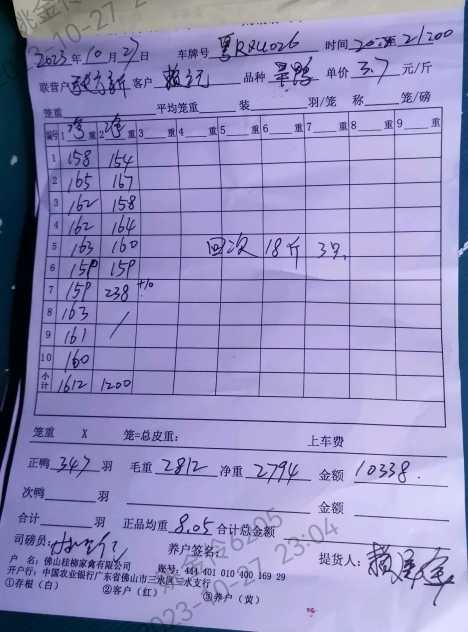 2023年10月27日 车牌号 粤RXU026 时间 21:00
联营户 客户 品种 单价 3.7 元/斤
笼重 平均笼重 装 羽/笼 称 笼/磅
编号 1 重 2 重 3 重 4 重 5 重 6 重 7 重 8 重 9 重
1 158 154
2 165 167
3 162 158
4 162 164
5 163 160 回次 18斤 3只
6 159 159
7 159 238 +10
8 163
9 161
10 160
小计 1612 1200
笼重 X 笼=总皮重: 上车费
正鸭 347 羽 毛重 2812 净重 2794 金额 10338.
次鸭 羽 金额
合计 羽 正品均重 8.05 合计总金额
司磅员: 养户签名: 提货人:
户 名: 佛山桂柳家禽有限公司 账号: 444 401 010 400 169 29
开户行: 中国农业银行广东省佛山市三水区三水支行
①存根(白) ②客户(红) ③养户(黄)
2023-10-27 23:04